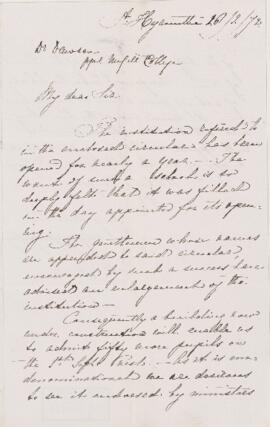 St Hyacinthe 26/2/73.
Dr Dawson
ppal McGill College
My dear Sir
The institution referred to
in the enclosed circular has been
opened for nearly a year. — The
want of such a school is so
deeply felt that it was filled
on the day appointed for its open-
ing.
The gentlemen whose names
are appended to said circular,
encouraged by such a success have
advised an enlargement of the
institution —
Consequently a building now
under construction will enable us
to admit fifty more pupils on
the 1st Sept. next. — As it is un-
denominational we are desirous
to see it endorsed by ministers